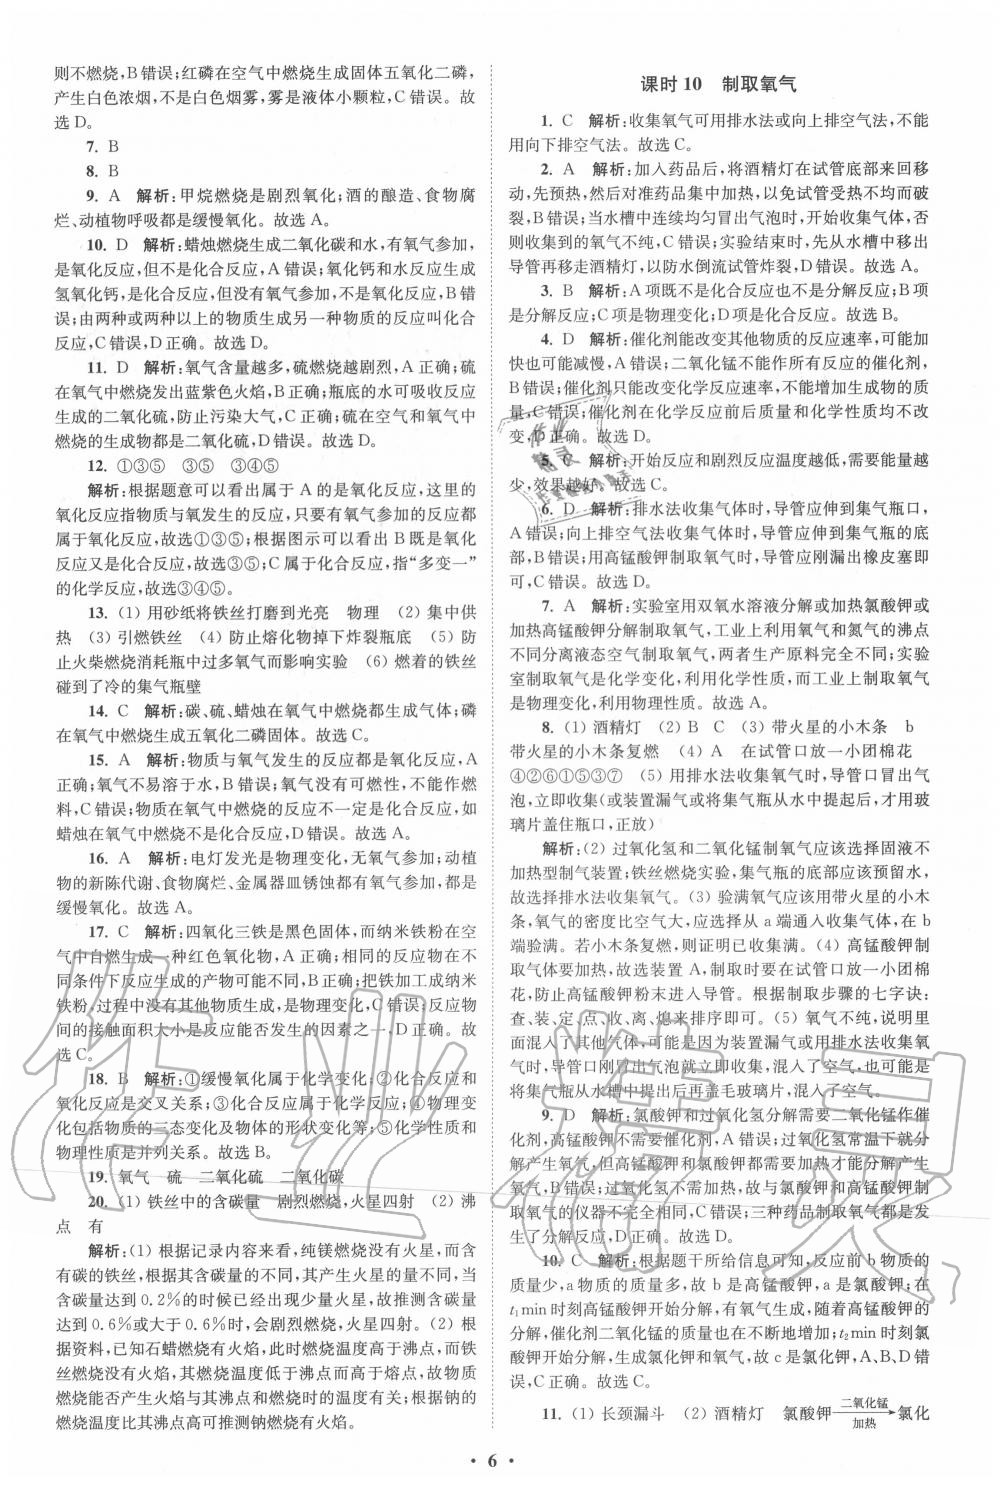 则不燃烧,B错误;红磷在空气中燃烧生成固体五氧化二磷,
产生白色浓烟,不是白色烟雾,雾是液体小颗粒,C错误。故
选D。
7. B
8. B
9. A 解析:甲烷燃烧是剧烈氧化;酒的酿造、食物腐
烂、动植物呼吸都是缓慢氧化。故选A。
10. D 解析:蜡烛燃烧生成二氧化碳和水,有氧气参加,
是氧化反应,但不是化合反应,A错误;氧化钙和水反应生成
氢氧化钙,是化合反应,但没有氧气参加,不是氧化反应,B错
误;由两种或两种以上的物质生成另一种物质的反应叫化合
反应,C错误,D正确。故选D。
11. D 解析:氧气含量越多,硫燃烧越剧烈,A正确;硫
在氧气中燃烧发出蓝紫色火焰,B正确;瓶底的水可吸收反应
生成的二氧化硫,防止污染大气,C正确;硫在空气和氧气中
燃烧的生成物都是二氧化硫,D错误。故选D。
12. ①③⑤ ③⑤ ③④⑤
解析:根据题意可以看出属于A的是氧化反应,这里的
氧化反应指物质与氧发生的反应,只要有氧气参加的反应都
属于氧化反应,故选①③⑤;根据图示可以看出B既是氧化
反应又是化合反应,故选③⑤;C属于化合反应,指“多变一”
的化学反应,故选③④⑤。
13. (1) 用砂纸将铁丝打磨到光亮 物理 (2) 集中供
热 (3) 引燃铁丝 (4) 防止熔化物掉下炸裂瓶底 (5) 防
止火柴燃烧消耗瓶中过多氧气而影响实验 (6) 燃着的铁丝
碰到了冷的集气瓶壁
14. C 解析:碳、硫、蜡烛在氧气中燃烧都生成气体;磷
在氧气中燃烧生成五氧化二磷固体。故选C。
15. A 解析:物质与氧气发生的反应都是氧化反应,A
正确;氧气不易溶于水,B错误;氧气没有可燃性,不能作燃
料,C错误;物质在氧气中燃烧的反应不一定是化合反应,如
蜡烛在氧气中燃烧不是化合反应,D错误。故选A。
16. A 解析:电灯发光是物理变化,无氧气参加;动植
物的新陈代谢、食物腐烂、金属器皿锈蚀都有氧气参加,都是
缓慢氧化。故选A。
17. C 解析:四氧化三铁是黑色固体,而纳米铁粉在空
气中自燃生成一种红色氧化物,A正确;相同的反应物在不
同条件下反应生成的产物可能不同,B正确;把铁加工成纳米
铁粉,过程中没有其他物质生成,是物理变化,C错误;反应物
间的接触面积大小是反应能否发生的因素之一,D正确。故
选C。
18. B 解析:①缓慢氧化属于化学变化;②化合反应和
氧化反应是交叉关系;③化合反应属于化学变化;④物理变
化包括物质的三态变化及物体的形状变化等;⑤化学性质和
物理性质是并列关系。故选B。
19. 氧气 硫 二氧化硫 二氧化碳
20. (1) 铁丝中的含碳量 剧烈燃烧,火星四射 (2) 沸
点 有
解析:(1) 根据记录内容来看,纯镁燃烧没有火星,而含
有碳的铁丝,根据其含碳量的不同,其产生火星的量不同,当
含碳量达到0.2%的时候已经出现少量火星,故推测含碳量
达到0.6%或大于0.6%时,会剧烈燃烧,火星四射。(2) 根
据资料,已知石蜡燃烧有火焰,此时燃烧温度高于沸点,而铁
丝燃烧没有火焰,其燃烧温度低于沸点而高于熔点,故物质
燃烧能否产生火焰与其沸点和燃烧时的温度有关;根据钠的
燃烧温度比其沸点高可推测钠燃烧有火焰。
课时10 制取氧气
1. C 解析:收集氧气可用排水法或向上排空气法,不能
用向下排空气法。故选C。
2. A 解析:加入药品后,将酒精灯在试管底部来回移
动,先预热,然后对准药品集中加热,以免试管受热不均而破
裂,B错误;当水槽中连续均匀冒出气泡时,开始收集气体,否
则收集到的氧气不纯,C错误;实验结束时,先从水槽中移出
导管再移走酒精灯,以防水倒流试管炸裂,D错误。故选A。
3. B 解析:A项既不是化合反应也不是分解反应;B项
是分解反应;C项是物理变化;D项是化合反应。故选B。
4. D 解析:催化剂能改变其他物质的反应速率,可能加
快也可能减慢,A错误;二氧化锰不能作所有反应的催化剂,
B错误;催化剂只能改变化学反应速率,不能增加生成物的质
量,C错误;催化剂在化学反应前后质量和化学性质均不改
变,D正确。故选D。
5. C 解析:开始反应和剧烈反应温度越低,需要能量越
少,效果越好。故选C。
6. D 解析:排水法收集气体时,导管应伸到集气瓶口,
A错误;向上排空气法收集气体时,导管应伸到集气瓶的底
部,B错误;用高锰酸钾制取氧气时,导管应刚漏出橡皮塞即
可,C错误。故选D。
7. A 解析:实验室用双氧水溶液分解或加热氯酸钾或
加热高锰酸钾分解制取氧气,工业上利用氧气和氮气的沸点
不同分离液态空气制取氧气,两者生产原料完全不同;实验
室制取氧气是化学变化,利用化学性质,工业上制取氧气的
是物理变化,利用物理性质。故选A。
8. (1) 酒精灯 (2) B C (3) 带火星的小木条 b
带火星的小木条复燃 (4) A 在试管口放一小团棉花
④②⑥①⑤③⑦ (5) 用排水法收集氧气时,导管口冒出气
泡,立即收集(或装置漏气或将集气瓶从水中提起后,才用玻
璃片盖住瓶口,正放)
解析:(2) 过氧化氢和二氧化锰制氧气应该选择固液不
加热型制气装置;铁丝燃烧实验,集气瓶的底部应该预留水,
故选择排水法收集氧气。(3) 验满氧气应该用带火星的小木
条,氧气的密度比空气大,应选择从a端通入收集气体,在b
端验满。若小木条复燃,则证明已收集满。(4) 高锰酸钾制
取气体要加热,故选装置A,制取时要在试管口放一小团棉
花,防止高锰酸钾粉末进入导管。根据制取步骤的七字诀:
查、装、定、点、收、离、熄来排序即可。(5) 氧气不纯,说明里
面混入了其他气体,可能是因为装置漏气或用排水法收集氧
气时,导管口刚冒出气泡就立即收集,混入了空气,也可能是
将集气瓶从水槽中提出后再盖毛玻璃片,混入了空气。
9. D 解析:氯酸钾和过氧化氢分解需要二氧化锰作催
化剂,高锰酸钾不需要催化剂,A错误;过氧化氢常温下就分
解产生氧气,但高锰酸钾和氯酸钾都需要加热才能分解产生
氧气,B错误;过氧化氢不需要加热,故与氯酸钾和高锰酸钾制
取氧气的仪器不完全一样,C错误;三种药品制取氧气都是发
生了分解反应,D正确。故选D。
10. C 解析:根据题干所给信息可知,反应前b物质的
质量少,a物质的质量多,故b是高锰酸钾,a是氯酸钾;在
t₁min时刻高锰酸钾开始分解,有氧气生成,随着高锰酸钾的
分解,催化剂二氧化锰的质量也在不断地增加;t₂min时刻氯
酸钾开始分解,生成氯化钾和氧气,故c是氯化钾,A、B、D错
误,C正确。故选C。
11. (1) 长颈漏斗 (2) 酒精灯 氯酸钾 二氧化锰 加热 氯化
• 6 •
作业精灵